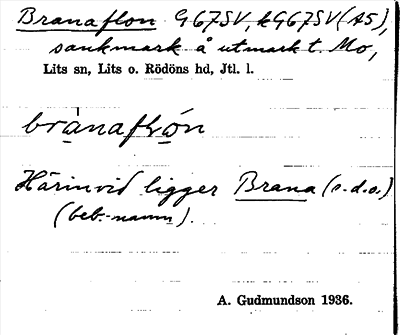 Branaflon G67SV, kG67SV (A5),
sankmark å utmark t. Mo,
Lits sn, Lits o. Rödöns hd, Jtl. l.
brànaflǫ́n
Härinvid ligger Brana (s.d.o.)
(beb.-namn).
A. Gudmundson 1936.